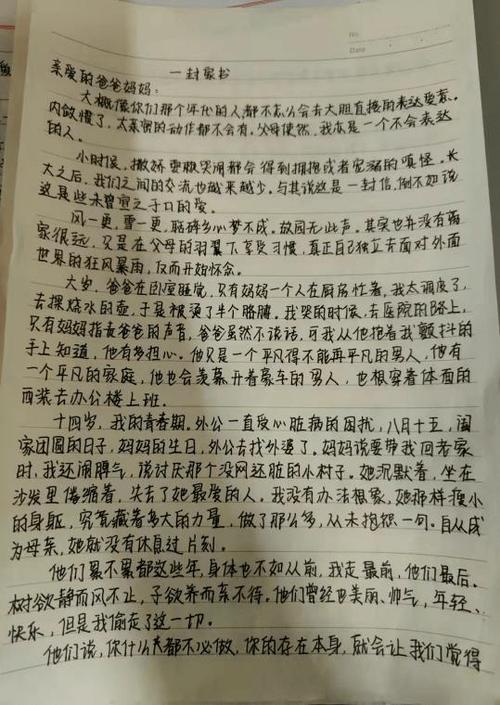 No
Date
一封家书
亲爱的爸爸妈妈：
大概像你们那个年代的人都不怎么会去大胆直接的表达爱意。
内敛惯了，太亲密的动作都不会有。父母使然，我亦是一个不会表达
的人。
小时候，撒娇耍赖哭闹都会得到拥抱或者宽溺的嗔怪。长
大之后，我们之间的交流也越来越少。与其说这是一封信，倒不如说
这是些未曾宣之于口的爱。
风一更，雪一更，聒碎乡心梦不成。故园无此声。其实也并没有离
家很远，只是在父母的羽翼下享受习惯，真正自己独立去面对外面
世界的狂风暴雨，反而开始怀念。
六岁，爸爸在卧室睡觉，只有妈妈一个人在厨房忙着，我太调皮了，
去摆烧水的壶，于是被烫了半个胳膊。我哭的时候，去医院的路上，
只有妈妈指责爸爸的声音，爸爸虽然不说话，可我从他抱着我颤抖的
手上知道，他有多担心。他只是一个平凡得不能再平凡的男人，他有
一个平凡的家庭，他也会羡慕开着豪车的男人，也想穿着体面的
西装去办公楼上班。
十四岁，我的青春期。外公一直受心脏病的困扰，八月十五，阖
家团圆的日子，妈妈的生日，外公去找外婆了。妈妈说要带我回老家
时，我还闹脾气，说讨厌那个没网还脏的小村子。她沉默着，坐在
沙发里倦缩着，失去了她最爱的人。我没有办法想象，她那样瘦小
的身躯，究竟藏着多大的力量，做了那么多，从未抱怨一句。自从成
为母亲，她就没有休息过片刻。
他们累不累都这些年，身体也不如从前，我走最前，他们最后。
树欲静而风不止，子欲养而亲不待。他们曾经也美丽、帅气，年轻、
快乐，但是我偷走了这一切。
他们说，你什么都不必做，你的存在本身，就会让我们觉得